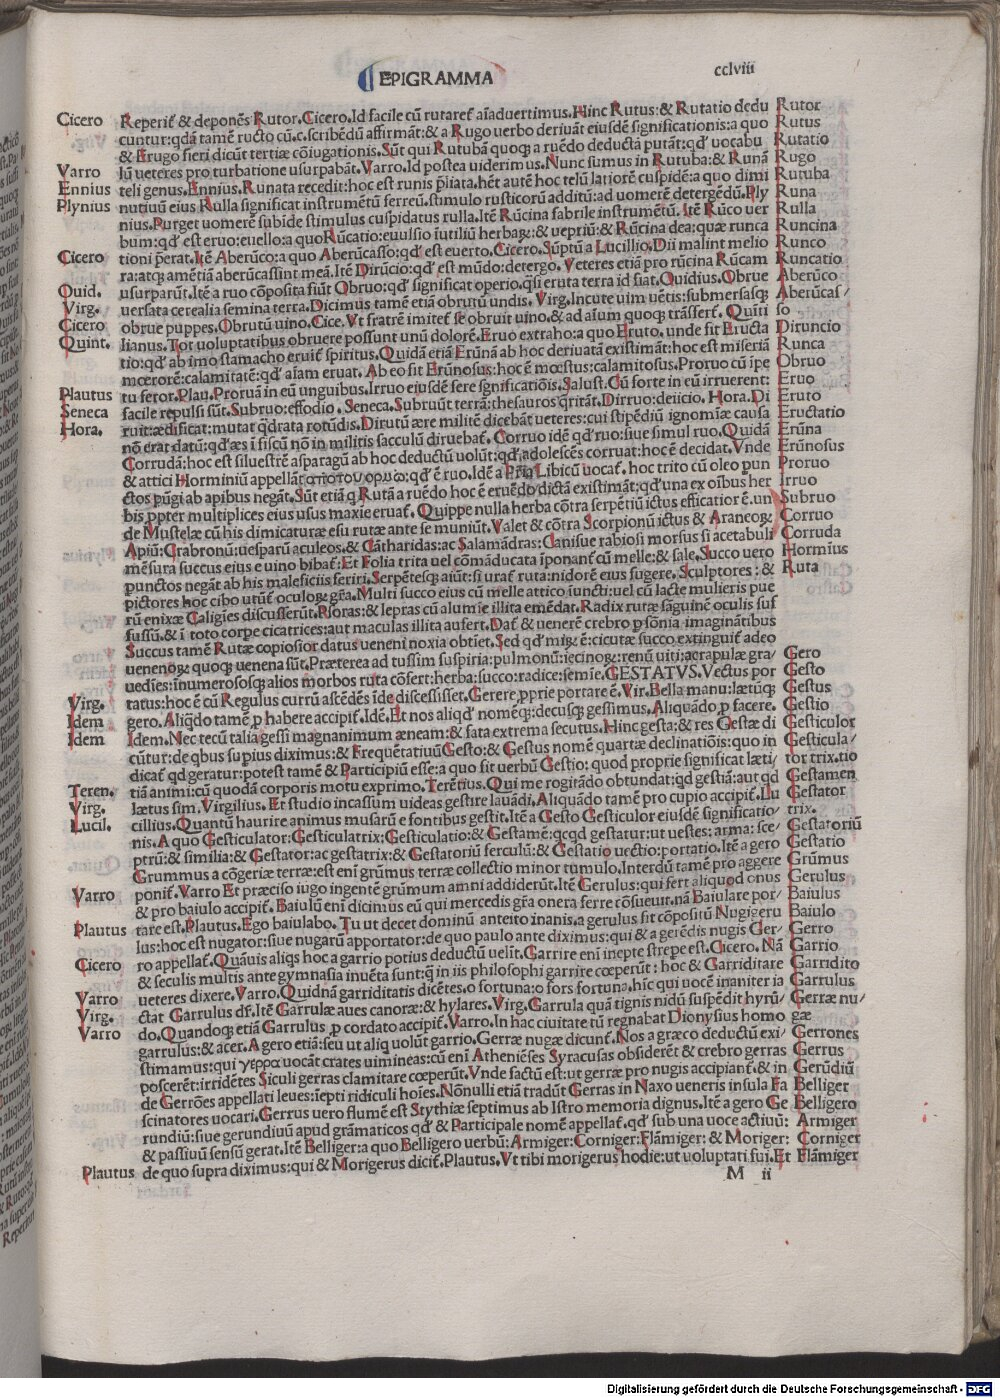 EPIGRAMMA
cclviii
Cicero Reperit᷑ & deponẽs Rutor. Cicero. Id facile cũ rutaret᷑ aĩaduertimus. Hinc Rutus: & Rutatio dedu Rutor
cuntur: qdã tamẽ ructo cũ.c. scribẽdũ affirmãt: & a Rugo uerbo deriuãt eiusdẽ significationis: a quo Rutus
& Erugo fieri dicũt tertiæ cõiugationis. Sũt qui Rutubã quoq; a ruẽdo deductã putãt: qd' uocabu Rutatio
Varro lũ ueteres pro turbatione usurpabãt. Varro. Id postea uiderimus. Nunc sumus in Rutuba: & Runã Rugo
Ennius teli genus. Ennius. Runata recedit: hoc est runis p̃liata. hẽt autẽ hoc telũ latiorẽ cuspidẽ: a quo dimi Rutuba
Plynius nutiuũ eius Rulla significat instrumẽtũ ferreũ: stimulo rusticorũ additũ: ad uomerẽ detergẽdũ. Ply Runa
nius. Purget uomerẽ subĩde stimulus cuspidatus rulla. Itẽ Rũcina fabrile instrumẽtũ. Itẽ Rũco uer Rulla
bum: qd' est eruo: euello: a quo Rũcatio: euulsio ĩutiliũ herbaꝝ: & uepriũ: & Rũcina dea: quæ runca Runcina
Cicero tioni p̃erat. Itẽ Aberũco: a quo Aberũcasso: qd' est euerto. Cicero. Sũptũ a Lucillio. Dii malint melio Runco
ra: atq; amẽtiã aberũcassint meã. Itẽ Dirũcio: qd' est mũdo: detergo. Veteres etiã pro rũcina Rũcam Runcatio
Quid. usurparũt. Itẽ a ruo cõposita fiũt Obruo: qd' significat operio. q̃si eruta terra id fiat. Quidius. Obrue Aberũco
Virg. uersata cerealia semina terra. Dicimus tamẽ etiã obrutũ undis. Virg. Incute uim uẽtis: submersasq; Aberũcas/
Cicero obrue puppes. Obrutũ uino. Cice. Vt fratrẽ imitet᷑ se obruit uino. & ad aĩum quoq; trãsfert᷑. Quiti so
Quint. lianus. Tot uoluptatibus obruere possunt unũ dolorẽ. Eruo extraho: a quo Eruto. unde fit Eructa Diruncio
tio: qd' ab imo stamacho eruit᷑ spiritus. Quidã etiã Erũnã ab hoc deriuatã existimãt: hoc est miseriã Runca
mœrorẽ: calamitatẽ: qd' aĩam eruat. Ab eo fit Erũnosus: hoc ẽ mœstus: calamitosus. Proruo cũ ĩpe Obruo
Plautus tu feror. Plau. Proruã in eũ unguibus. Irruo eiusdẽ fere sgnificatiõis. Salust. Cũ forte in eũ irruerent: Eruo
Seneca facile repulsi sũt. Subruo: effodio. Seneca. Subruũt terrã: thesauros q̃ritãt. Dirruo: deiicio. Hora. Di Eruto
Hora. ruit: ædificat: mutat q̃drata rotũdis. Dirutũ ære militẽ dicebãt ueteres: cui stipẽdiũ ignomiæ causa Eructatio
nõ erat datũ: qd' æs ĩ fiscũ nõ in militis sacculũ diruebat᷑. Corruo idẽ qd' ruo: siue simul ruo. Quidã Erũna
Corrudã: hoc est siluestrẽ asparagũ ab hoc deductũ uolũt: qd' adolescẽs corruat: hoc ẽ decidat. Vnde Erũnosus
& attici Horminiũ appellãt απο του ορμω: qd' ẽ ruo. Idẽ a Libicũ uocat᷑. hoc trito cũ oleo pun Proruo
ctos pũgi ab apibus negãt. Sũt etiã q Rutã a ruẽdo hoc ẽ eruẽdo dictã existimãt: qd' una ex oĩbus her Irruo
bis ꝓpter multiplices eius usus maxie eruat᷑. Quippe nulla herba cõtra serpẽtiũ ictus efficatior ẽ. un Subruo
de Mustelæ cũ his dimicaturæ esu rutæ ante se muniũt. Valet & cõtra Scorpionũ ictus & Araneoꝝ Corruo
Apiũ: Crabronũ: uesparũ aculeos. & Cãtharidas: ac Salamãdras: Canisue rabiosi morsus si acetabuli Corruda
mẽsura succus eius e uino bibat᷑: Et Folia trita uel cõmãducata ĩponant᷑ cũ melle: & sale. Succo uero Hormĩus
punctos negãt ab his maleficiis feriri. Serpẽtesq; aiũt: si urat᷑ ruta: nidorẽ eius fugere. Sculptores: & Ruta
pictores hoc cibo utũt᷑ oculoꝝ gr̃a. Multi succo eius cũ melle attico iuncti: uel cũ lacte mulieris pue
rũ enixæ Caligĩes discusserũt. Psoras: & lepras cũ alumĩe illita emẽdat. Radix rutæ sãguinẽ oculis suf
fussũ. & ĩ toto corpe cicatrices: aut maculas illita aufert. Dat᷑ & uenerẽ crebro p̱ sõnia imaginãtibus
Succus tamẽ Rutæ copiosior datus ueneni noxia obtĩet. Sed qd' miꝝ ẽ: cicutæ succo extinguit᷑ adeo
uenenoꝝ quoq; uenena sũt. Præterea ad tussim suspiria: pulmonũ: iecinoꝝ: renũ uiti: acrapulæ gra/ Gero
uedĩes: ĩnumerososq; alios morbos ruta cõfert: herba: succo: radice: semĩe. GESTATVS. Vectus por Gesto
Virg. tatus: hoc ẽ cũ Regulus currũ ascẽdẽs ĩde discessisset. Gerere ꝓprie portare ẽ. Vir. Bella manu: lætũq; Gestus
Idem gero. Aliq̃do tamẽ ꝓ habere accipit᷑. Idẽ. Et nos aliqd' nomẽq; decusq; gessimus. Aliquãdo ꝓ facere. Gestio
Idem Idem. Nec tecũ talia gessi magnanimum æneam: & fata extrema secutus. Hinc gesta: & res Gestæ di Gesticulor
cũtur: de qbus supius diximus: & Frequẽtatiuũ Gesto: & Gestus nomẽ quartæ declinatiõis: quo in Gesticula/
dicat᷑ qd geratur: potest tamẽ & Participiũ esse: a quo fit uerbũ Gestio: quod proprie significat læti/ tor trix. tio
Teren. tiã animi: cũ quodã corporis motu exprimo. Terẽtius. Qui me rogitãdo obtundat: qd gestiã: aut qd Gestamen
Virg. lætus sim. Virgilius. Et studio incassum uideas gestire lauãdi. Aliquãdo tamẽ pro cupio accipit᷑. Lu Gestator
Lucil. cillius. Quantũ haurire animus musarũ e fontibus gestit. Itẽ a Gesto Gesticulor eiusdẽ significatio/ trix.
nis. A quo Gesticulator: Gesticulatrix: Gesticulatio: & Gestamẽ: qcqd gestatur: ut uestes: arma: sce/ Gestatoriũ
ptrũ: & similia: & Gestator: ac gestatrix: & Gestatoriũ ferculũ: & Gestatio uectio: portatio. Itẽ a gero Gestatio
Grummus a cõgeriæ terræ: est enĩ grũmus terræ collectio minor tumulo. Interdũ tamẽ pro aggere Grũmus
Varro ponit᷑. Varro Et præciso iugo ingentẽ grũmum amni addiderũt. Itẽ Gerulus: qui fert aliquod onus Gerulus
& pro baiulo accipit᷑. Baiulũ enĩ dicimus eũ qui mercedis gr̃a onera ferre cõsueuit. nã Baiulare por/ Baiulus
Plautus tare est. Plautus. Ego baiulabo. Tu ut decet dominũ anteito inanis. a gerulus fit cõpositũ Nugigeru Baiulo
lus: hoc est nugator: siue nugarũ apportator: de quo paulo ante diximus: qui & a gerẽdis nugis Ger/ Gerro
Cicero ro appellat᷑. Quãuis aliqs hoc a garrio potius deductũ uelit. Garrire enĩ inepte strepe est. Cicero. Nã Garrio
& seculis multis ante gymnasia inuẽta sunt: q̃ in iis philosophi garrire cœperũt: hoc & Garriditare Garridito
Varro ueteres dixere. Varro. Quidnã garriditatis dicẽtes. o fortuna: o fors fortuna. hĩc qui uocẽ inaniter ia Garrulus
Virg. ctat Garrulus dr̃. Itẽ Garrulæ aues canoræ: & hylares. Virg. Garrula quã tignis nidũ suspẽdit hyrũ/ Gerræ nu/
Varro do. Quandoq; etiã Garrulus ꝓ cordato accipit᷑. Varro. In hac ciuitate tũ regnabat Dionysius homo gæ
garrulus: & acer. A gero etiã: seu ut aliq uolũt garrio. Gerræ nugæ dicunt᷑. Nos a græco deductũ exi/ Gerrones
stimamus: qui γέρρα uocãt crates uimineas: cũ enĩ Atheniẽses Syracusas obsiderẽt & crebro gerras Gerrus
poscerẽt: irridẽtes Siculi gerras clamitare cœperũt. Vnde factũ est: ut gerræ pro nugis accipiant᷑. & in Gerũdiũ
de Gerrões appellati leues: ĩepti ridiculi hoĩes. Nõnulli etiã tradũt Gerras in Naxo ueneris insula Fa Belliger
scinatores uocari. Gerrus uero flumẽ est Stythiæ septimus ab Istro memoria dignus. Itẽ a gero Ge Belligero
rundiũ: siue gerundiuũ apud grãmaticos qd' & Participale nomẽ appellat᷑. qd' sub una uoce actiuũ: Armiger
& passiuũ sensũ gerat. Itẽ Belliger: a quo Belligero uerbũ: Armiger: Corniger: Flãmiger: & Moriger: Corniger
Plautus de quo supra diximus: qui & Morigerus dicit᷑. Plautus. Vt tibi morigerus hodie: ut uoluptati fui. Et Flãmiger
M ii
Digitalisierung gefördert durch die Deutsche Forschungsgemeinschaft - DFG